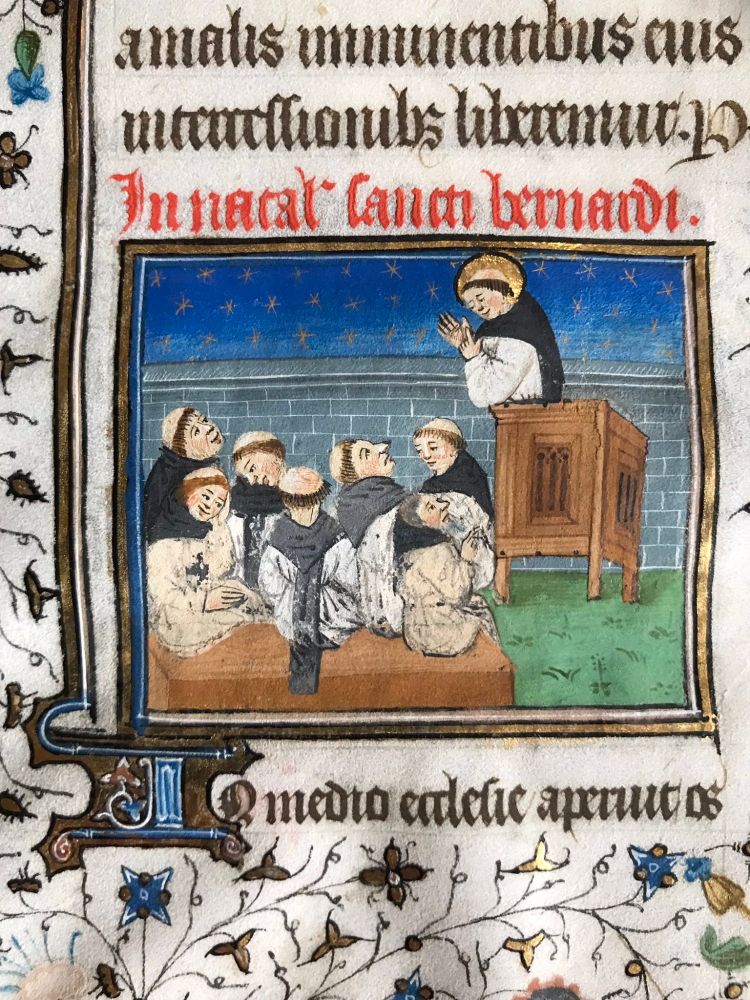 a malis imminentibus eius
intercessionibs liberemur. P
In natal' sancti bernardi.
IN medio ecclesie aperuit os